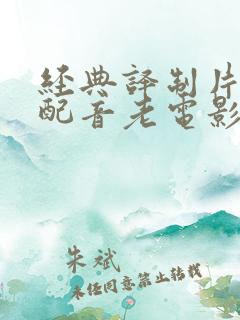 經典譯制片
配音老電影
朱斌
未经同意禁止转载